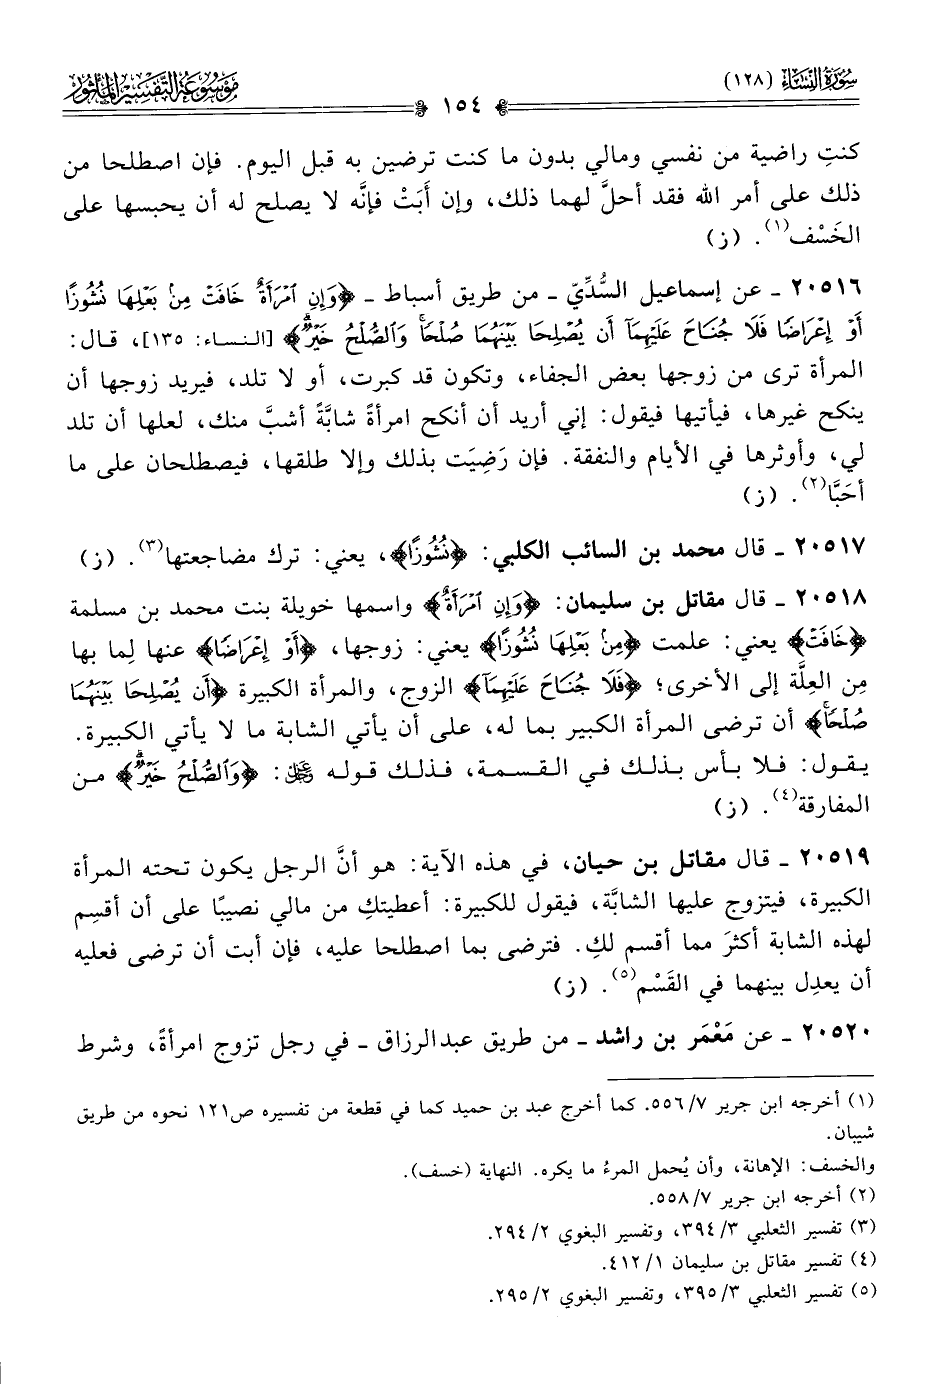 سُورَةُ النِّسَاءِ (١٢٨)
مَوْسُوعَةُ التَّفْسِيرِ المَأْثُورِ
١٥٤
كنتِ راضية من نفسي ومالي بدون ما كنت ترضين به قبل اليوم. فإن اصطلحا من
ذلك على أمر الله فقد أحلَّ لهما ذلك، وإن أَبَتْ فإنَّه لا يصلح له أن يحبسها على
الخَسْف(١). (ز)
٢٠٥١٦ ـ عن إسماعيل السُّدِّيّ ـ من طريق أسباط ـ ﴿وَإِنِ ٱمْرَأَةٌ خَافَتْ مِنۢ بَعْلِهَا نُشُوزًا
أَوْ إِعْرَاضًا فَلَا جُنَاحَ عَلَيْهِمَآ أَن يُصْلِحَا بَيْنَهُمَا صُلْحًاۚ وَٱلصُّلْحُ خَيْرٌۗ﴾ [النساء: ١٣٥]، قال:
المرأة ترى من زوجها بعض الجفاء، وتكون قد كبرت، أو لا تلد، فيريد زوجها أن
ينكح غيرها، فيأتيها فيقول: إني أريد أن أنكح امرأةً شابَّةً أشبَّ منك، لعلها أن تلد
لي، وأوثرها في الأيام والنفقة. فإن رَضِيَت بذلك وإلا طلقها، فيصطلحان على ما
أحَبَّا(٢). (ز)
٢٠٥١٧ ـ قال محمد بن السائب الكلبي: ﴿نُشُوزًا﴾، يعني: ترك مضاجعتها(٣). (ز)
٢٠٥١٨ ـ قال مقاتل بن سليمان: ﴿وَإِنِ ٱمْرَأَةٌ﴾ واسمها خويلة بنت محمد بن مسلمة
﴿خَافَتْ﴾ يعني: علمت ﴿مِنۢ بَعْلِهَا نُشُوزًا﴾ يعني: زوجها، ﴿أَوْ إِعْرَاضًا﴾ عنها لِما بها
مِن العِلَّة إلى الأخرى؛ ﴿فَلَا جُنَاحَ عَلَيْهِمَآ﴾ الزوج، والمرأة الكبيرة ﴿أَن يُصْلِحَا بَيْنَهُمَا
صُلْحًاۚ﴾ أن ترضى المرأة الكبير بما له، على أن يأتي الشابة ما لا يأتي الكبيرة.
يقول: فلا بأس بذلك في القسمة، فذلك قوله ﷻ: ﴿وَٱلصُّلْحُ خَيْرٌۗ﴾ من
المفارقة(٤). (ز)
٢٠٥١٩ ـ قال مقاتل بن حيان، في هذه الآية: هو أنَّ الرجل يكون تحته المرأة
الكبيرة، فيتزوج عليها الشابَّة، فيقول للكبيرة: أعطيتكِ من مالي نصيبًا على أن أقسِم
لهذه الشابة أكثرَ مما أقسم لكِ. فترضى بما اصطلحا عليه، فإن أبت أن ترضى فعليه
أن يعدِل بينهما في القَسْم(٥). (ز)
٢٠٥٢٠ ـ عن مَعْمَر بن راشد ـ من طريق عبدالرزاق ـ في رجل تزوج امرأةً، وشرط
(١) أخرجه ابن جرير ٧/ ٥٥٦. كما أخرج عبد بن حميد كما في قطعة من تفسيره ص١٢١ نحوه من طريق
شيبان.
والخسف: الإهانة، وأن يُحمل المرءُ ما يكره. النهاية (خسف).
(٢) أخرجه ابن جرير ٧/ ٥٥٨.
(٣) تفسير الثعلبي ٣/ ٣٩٤، وتفسير البغوي ٢/ ٢٩٤.
(٤) تفسير مقاتل بن سليمان ١/ ٤١٢.
(٥) تفسير الثعلبي ٣/ ٣٩٥، وتفسير البغوي ٢/ ٢٩٥.